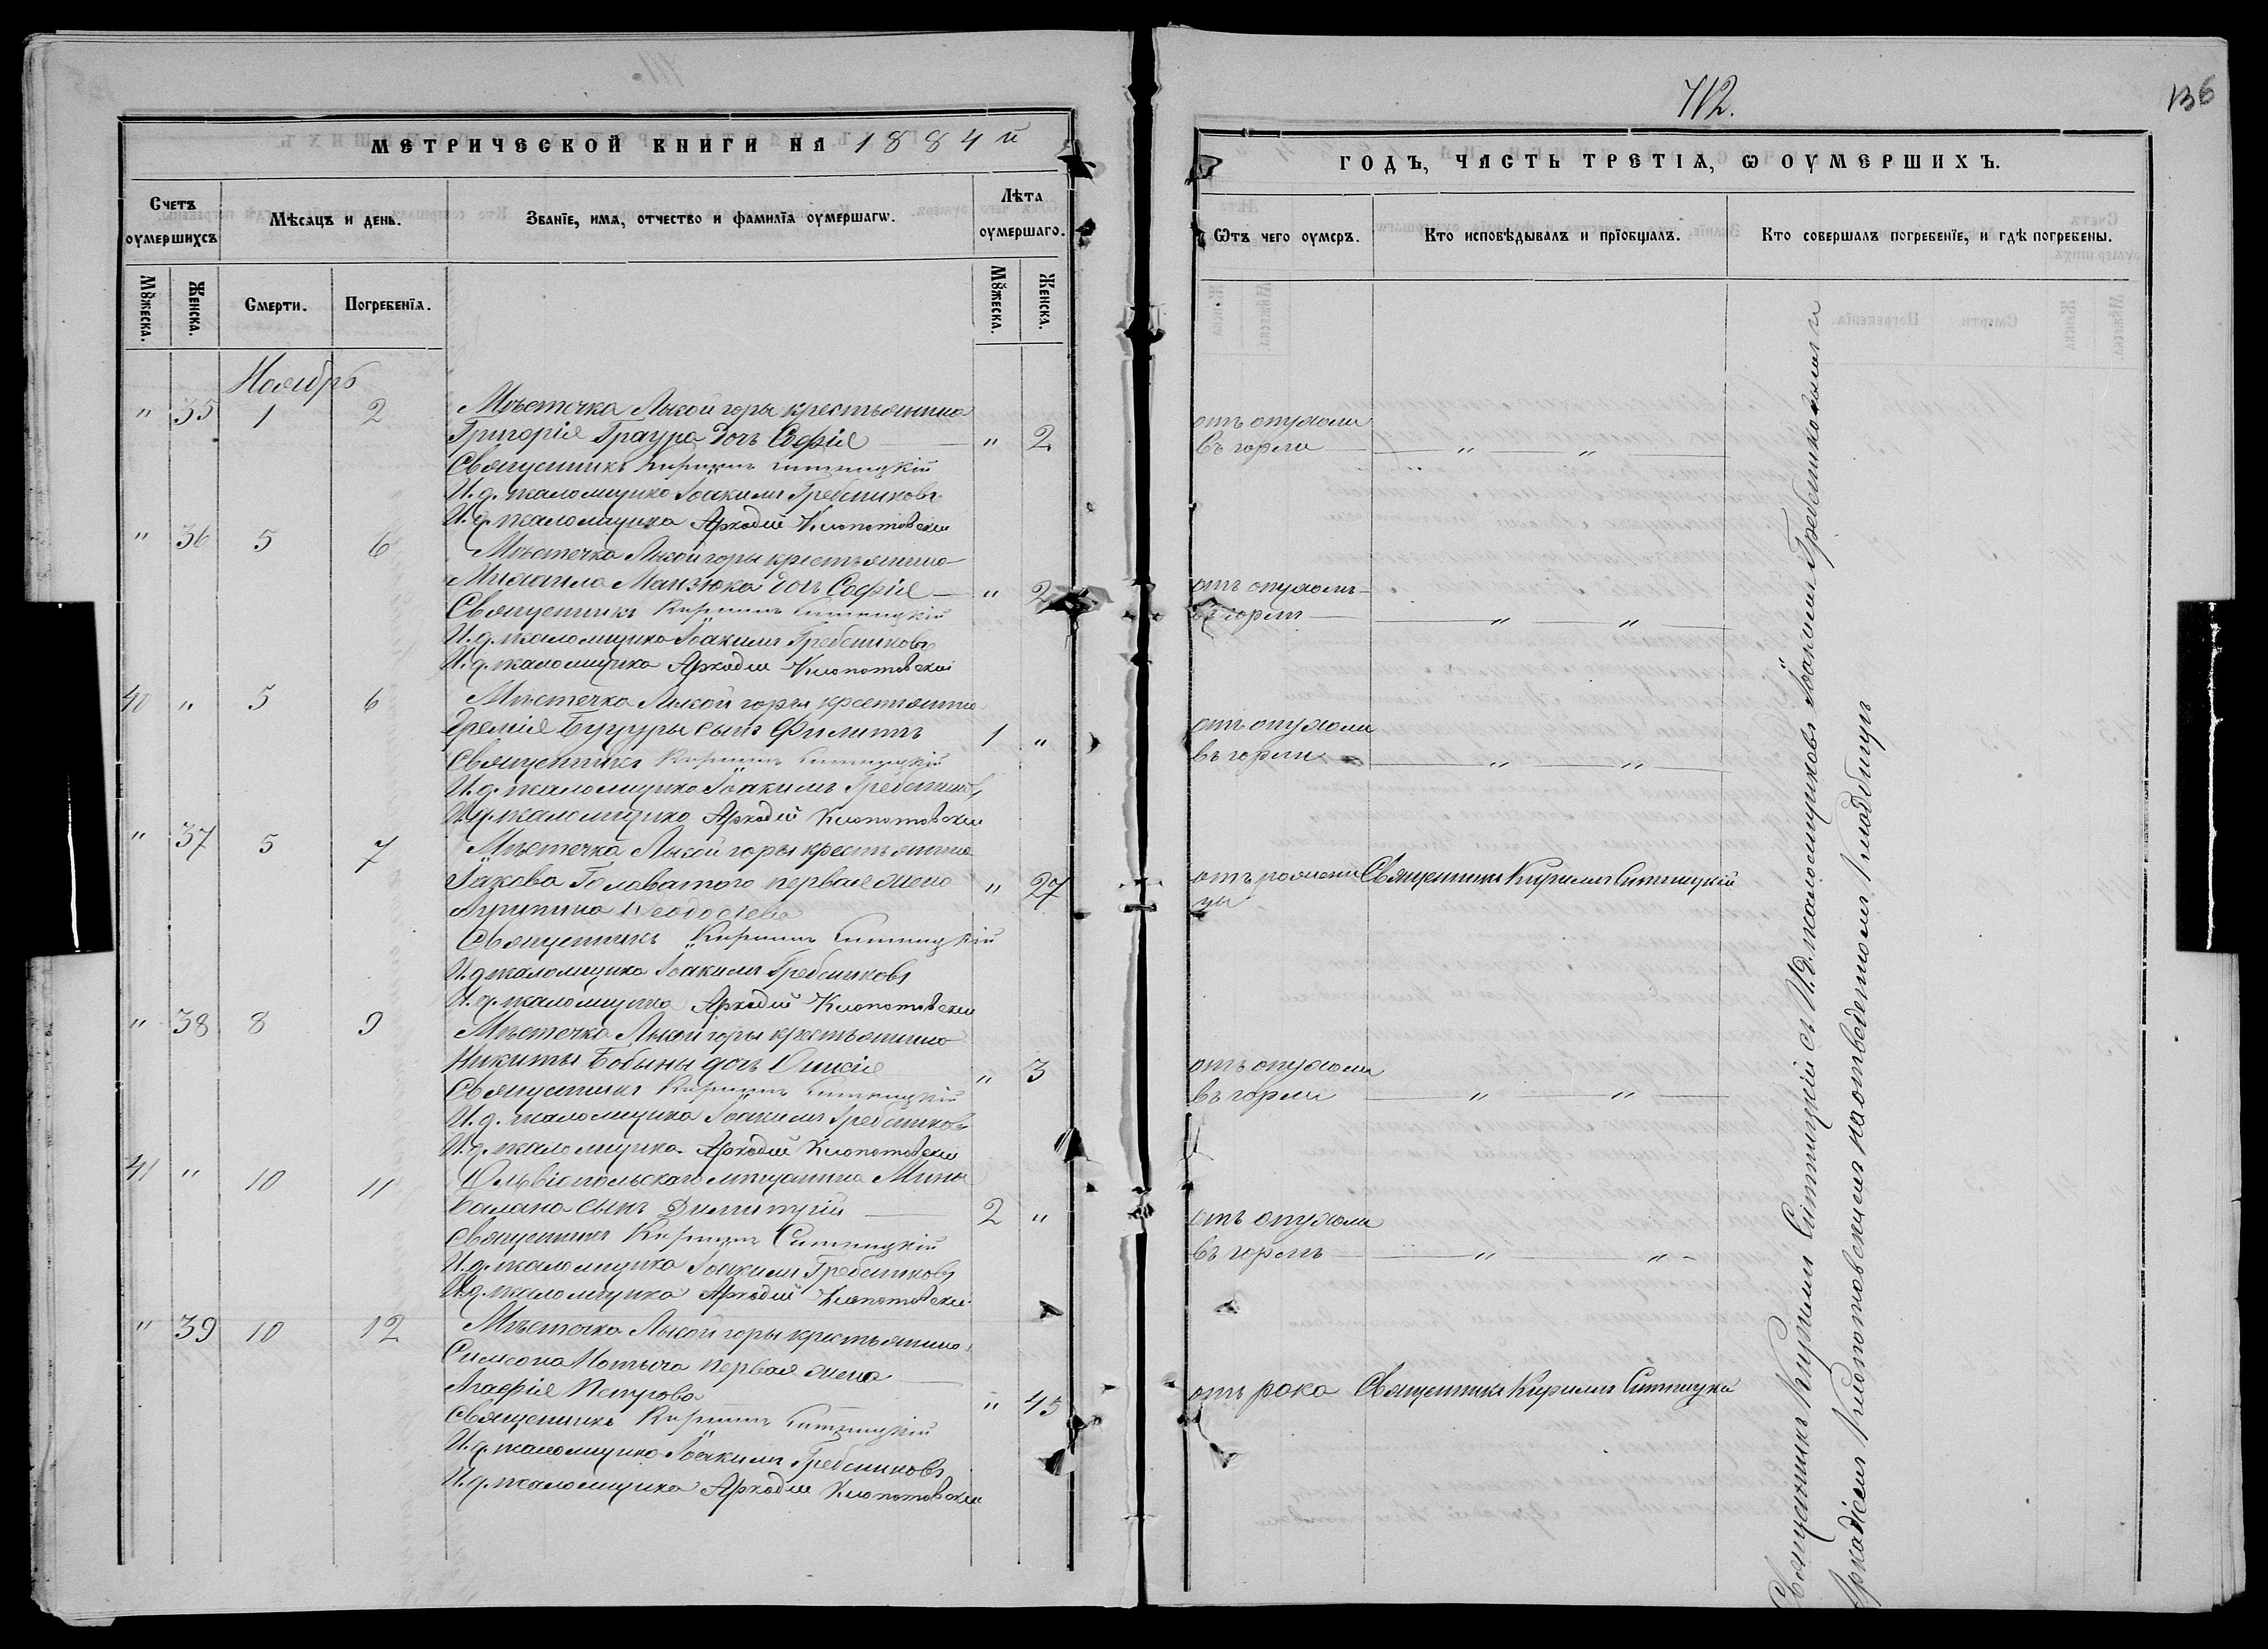 МЕТРИЧЕСКОЙ КНИГИ НА 1884 й
Счетъ оумершихсъ
Мѣсяцъ и день.
Званїе, имя, отчество и фамилїа оумершагѡ.
Лѣта оумершаго.
Мꙋжеска.
Женска.
Смерти.
Погребенїя.
Мꙋжеска.
Женска.
Ноябрь
" 35 1 2 Мѣстечка Лысой горы крестьянина
Григорія Граура дочь Софія " 2
Священникъ Кириллъ Ситницкій
И. д. псаломщика Іоакимъ Гребенниковъ
И. д. псаломщика Аркадій Клопотовскій
" 36 5 6 Мѣстечка Лысой горы крестьянина
Михаила Манзюка дочь Софія " 2
Священникъ Кириллъ Ситницкій
И. д. псаломщика Іоакимъ Гребенниковъ
И. д. псаломщика Аркадій Клопотовскій
40 " 5 6 Мѣстечка Лысой горы крестьянина
Еремія сынъ Филиппъ 1 "
Священникъ Кириллъ Ситницкій
И. д. псаломщика Іоакимъ Гребенниковъ
И. д. псаломщика Аркадій Клопотовскій
" 37 5 7 Мѣстечка Лысой горы крестьянина
Іакова Головатого первая жена " 27
Агрипина Ѳеодосіева
Священникъ Кириллъ Ситницкій
И. д. псаломщика Іоакимъ Гребенниковъ
И. д. псаломщика Аркадій Клопотовскій
" 38 8 9 Мѣстечка Лысой горы крестьянина
Никиты Бобыны дочь " 3
Священникъ Кириллъ Ситницкій
И. д. псаломщика Іоакимъ Гребенниковъ
И. д. псаломщика Аркадій Клопотовскій
41 " 10 11 Ольвіопольскаго мѣщанина Мины
Балана сынъ Димитрій 2 "
Священникъ Кириллъ Ситницкій
И. д. псаломщика Іоакимъ Гребенниковъ
И. д. псаломщика Аркадій Клопотовскій
" 39 10 12 Мѣстечка Лысой горы крестьянина
Симеона первая жена
Агафія Петрова " 45
Священникъ Кириллъ Ситницкій
И. д. псаломщика Іоакимъ Гребенниковъ
И. д. псаломщика Аркадій Клопотовскій
712.
136
ГОДЪ, ЧАСТЬ ТРЕТІѦ, Ѡ ОУМЕРШИХЪ.
Ѿтъ чего оумеръ.
Кто исповѣдывалъ и прїобщалъ.
Кто совершалъ погребенїе, и гдѣ погребены.
отъ опухоли
въ горли " "
отъ опухоли
въ горлѣ " "
отъ опухоли
въ горли " "
отъ Священникъ Кириллъ Ситницкій
отъ опухоли
въ горли " "
отъ опухоли
въ горлѣ " "
отъ рака Священникъ Кириллъ Ситницкій
Священникъ Кириллъ Ситницкій съ И. д. псаломщиковъ Іоакимомъ Гребенниковымъ и
Аркадіемъ Клопотовскимъ на отведенномъ кладбищѣ